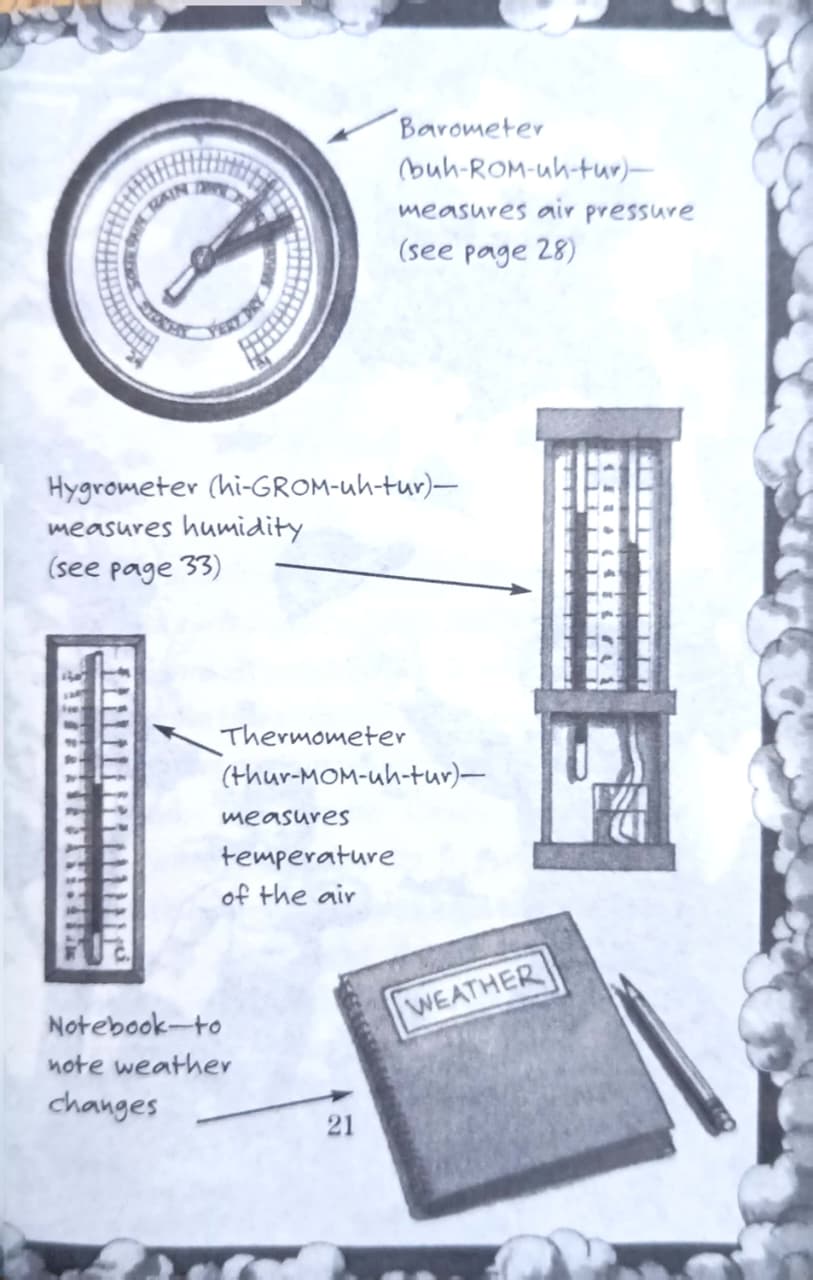 Barometer
(buh-ROM-uh-tur)—
measures air pressure
(see page 28)
RAIN
STORMY VERY DRY
Hygrometer (hi-GROM-uh-tur)—
measures humidity
(see page 33)
Thermometer
(thur-MOM-uh-tur)—
measures
temperature
of the air
C.
WEATHER
Notebook—to
note weather
changes
21